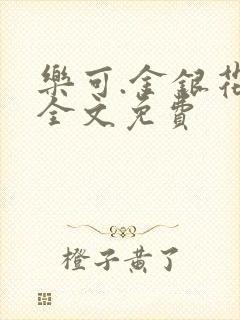 樂可.金銀花
全文免費
橙子黃了